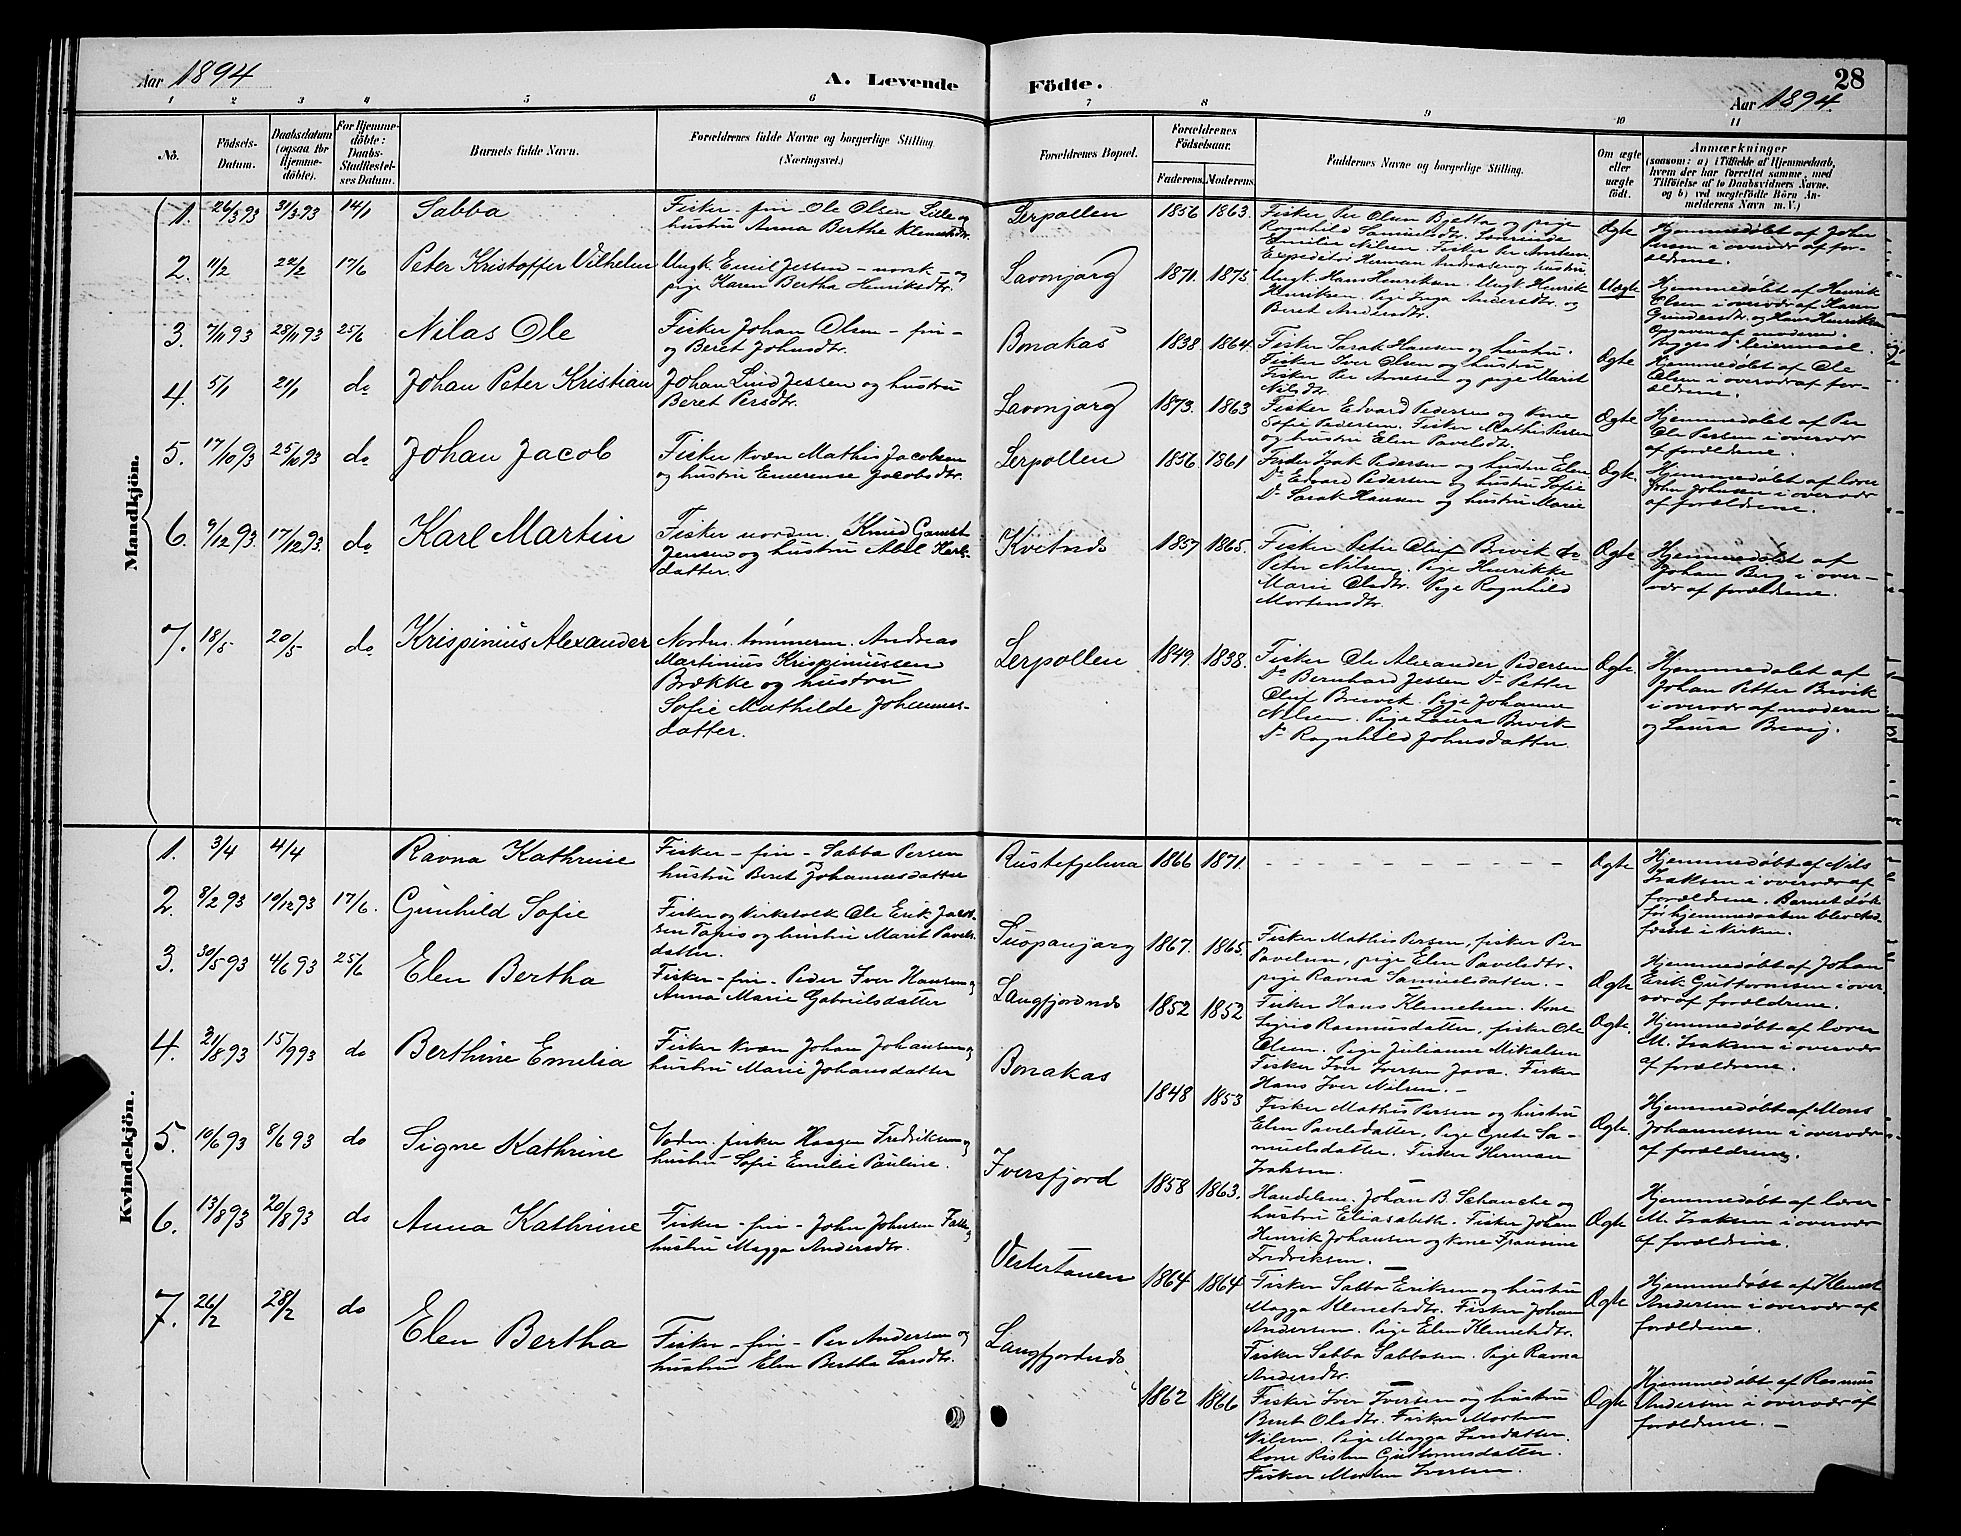 Aar 1894
A. Levende Födte.
28
Aar 1894.
1 2 3 4 5 6 7 8 9 10 11
No.
Födsels-
Datum.
Daabsdatum
(ogsaa for
Hjemme-
döbte).
For Hjemme-
döbte:
Daabs-
Stadfæstel-
ses Datum.
Barnets fulde Navn.
Forældrenes fulde Navne og borgerlige Stilling.
(Næringsvei.)
Forældrenes Bopæl.
Forældrenes
Födselsaar.
Faderens. Moderens.
Faddernes Navne og borgerlige Stilling.
Om ægte
eller
uægte
födt.
Anmærkninger
(saasom: a) i Tilfælde af Hjemmedaab,
hvem der har forrettet samme, med
Tilföielse af to Daabsvidners Navne,
og b) ved uægtefödte Börn An-
melderens Navn m. V.)
Mandkjön.
1. 26/3 93 31/3 93 14/1 Sabba
Fisker - fin - Ole Olsen Lille og
hustru Anna Berthe Klemetsdtr.
Lerpollen 1856 1863.
Fisker Per Olsen Bjetta og pige
Ragnhild Samuelsdtr.
Ægte
Hjemmedøbt af Johan
Persen i overvær af for-
ældrene.
2. 11/2 22/2 17/6 Peter Kristoffer Vilhelm
Ungk. Emil Jessen - norsk - og
pige Karen Bertha Henriksdtr.
Lavonjarg 1871. 1875.
Expeditør Herman Andreasen og hustru
Ungk. Hans Henriksen. Ungk. Henrik
Henriksen. Pige Inga Andersdtr. og
Beret Andersdtr.
Uægte
Hjemmedøbt af Henrik
Olsen i overvær af Karen
Gundersdtr. og Hans Henriksen
Opgaven af moderen.
3. 7/11 93 28/11 93 25/6 Nilas Ole
Fisker Johan Olsen - fin -
og Beret Johnsdtr.
Bonakas 1838 1864.
Fisker Sarak Hansen og hustru.
Fisker Iver Olsen og hustru
Fisker Per Arnesen og pige Marit
Nilsdtr.
Ægte
Hjemmedøbt af Ole
Olsen i overvær af for-
ældrene.
4. 5/1 21/1 do Johan Peter Kristian
Johan Lind Jessen og hustru
Beret Persdtr.
Lavonjarg 1873. 1863
Fisker Edvard Pedersen og kone
Sofie Pedersen. Fisker Mathis Persen
og hustru Elen Pavelsdtr.
Ægte
Hjemmedøbt af Per
Ole Persen i overvær
af forældrene.
5. 17/10 93 25/10 93 do Johan Jacob
Fisker kvæn Mathis Jacobsen
og hustru Emerense Jacobsdtr.
Lerpollen 1856 1861
Fisker Isak Pedersen og hustru Elen
Do Edvard Pedersen og hustru Sofie
Do Sarak Hansen og hustru Marie
Ægte.
Hjemmedøbt af lærer
John Johnsen i overvær
af forældrene.
6. 9/12 93. 17/12 93. do Karl Martin
Fisker nordm. Knud Gamst
Jensen og hustru Abel Karls-
datter.
Kvitnæs 1857 1865.
Fisker Peter Oluf Brevik do
Peter Nilsen. Pige Henrikke
Marie Olsdtr. Pige Ragnhild
Mortensdtr.
Ægte.
Hjemmedøbt af
Johan Berg i over-
vær af forældrene.
7. 18/5 20/5 do Krispinius Alexander
Nordm. tømmerm. Andreas
Martinius Krispiniussen
Brække og hustru
Sofie Mathilde Johannes-
datter.
Lerpollen 1849. 1838.
Fisker Ole Alexander Pedersen
Do Bernhard Jessen Do Petter
Oluf Brevik. Pige Johanne
Nilsen. Pige Laura Brevik
Do Ragnhild Johnsdatter.
Ægte.
Hjemmedøbt af
Johan Petter Brevik
i overvær af moderen
og Laura Brevig.
Kvindekjön.
1. 3/4 4/4 Ravna Kathrine
Fisker - fin - Sabba Persen
hustru Beret Johannesdatter
Rustefjelma 1866 1871.
Ægte
Hjemmedøbt af Nils
Isaksen i overvær af
forældrene. Barnet døde
før hjemmedaaben blev stad-
fæstet i kirken.
2. 8/2 93 10/12 93 17/6. Gunhild Sofie
Fisker og kirketolk Ole Erik Jacob-
sen Tapis og hustru Marit Pavels-
datter.
Suopanjarg 1867. 1865.
Fisker Mathis Persen, fisker Per
Pavelsen, pige Elen Pavelsdtr.
pige Ravna Samuelsdatter. -
Ægte
Hjemmedøbt af Johan
Erik Guttormsen i over-
vær af forældrene.
3. 30/5 93 4/6 93 25/6 Elen Bertha
Fisker - fin - Peder Iver Hansen og
Anna Marie Gabrielsdatter
Langfjordnæs 1852 1852
Fisker Hans Klemetsen. Kone
Sigris Rasmusdatter, fisker Ole
Olsen. Pige Julianne Mikalsen
Ægte.
Hjemmedøbt af lærer
M. Isaksen i overvær
af forældrene.
4. 21/8 93 15/9 93 do Berthine Emelia
Fisker kvæn Johan Johansen og
hustru Marie Johansdatter
Bonakas 1848 1853
Fisker Iver Iversen Java. Fisker
Hans Iver Nilsen. -
Fisker Mathis Persen og hustru
Elen Pavelsdatter, Pige Grete Sa-
muelsdatter. Fisker Herman
Isaksen.
Ægte.
Hjemmedøbt af Mons
Johannessen i overvær
af forældrene.
5. 10/6 93 8/6 93 do Signe Kathrine
Nordm. fisker Haagen Fredriksen og
hustru Sofie Emilie Pauline.
Iversfjord 1858 1863.
Handelsm. Johan B. Schanche og
hustru Eliasabeth. Fisker Johan
Henrik Johansen og kone Fransine
Fredriksen.
Ægte
Hjemmedøbt af lærer
M. Isaksen i overvær
af forældrene.
6. 13/8 93 20/8 93 do Anna Kathrine
Fisker - fin - John Johnsen
hustru Magga Andersdtr.
Vestertanen 1864 1864
Fisker Sabba Eriksen og hustru
Magga Klemetsdtr. Fisker Johan
Andersen. Pige Elen Klemetsdtr.
Fisker Sabba Sabbasen. Pige Ravna
Andersdtr.
Ægte
Hjemmedøbt af Klemet
Andersen i overvær af
forældrene.
7. 26/2 28/2 do Elen Bertha
Fisker - fin - Per Andersen og
hustru Elen Berthe Larsdtr.
Langfjordnæs 1862 1866
Fisker Iver Iversen og hustru
Berit Olsdtr. Fisker Morten
Nilsen. Pige Magga Larsdatter.
Kone Risten Guttormsdatter.
Fisker Morten Iversen.
Ægte
Hjemmedøbt af Rasmus
Andersen i overvær af
forældrene. -